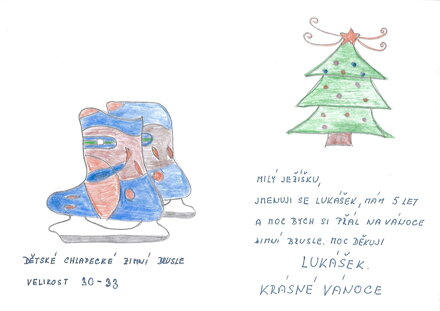 DĚTSKÉ CHLAPECKÉ ZIMNÍ BRUSLE
VELIKOST 30-33
MILÝ JEŽÍŠKU,
JMENUJI SE LUKÁŠEK, MÁM 5 LET
A MOC BYCH SI PŘÁL NA VÁNOCE
ZIMNÍ BRUSLE. MOC DĚKUJI
LUKÁŠEK.
KRÁSNÉ VÁNOCE